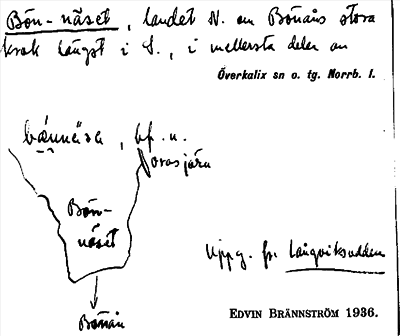 Bön-näset, landet N. om Bönåns stora
krok längst i S., i mellersta delen av
Överkalix sn o. tg. Norrb. l.
bǽnnäsa, bf. n.
Bön-
näset
Uppg. fr. Långviksudden
Bönån
EDVIN BRÄNNSTRÖM 1936.